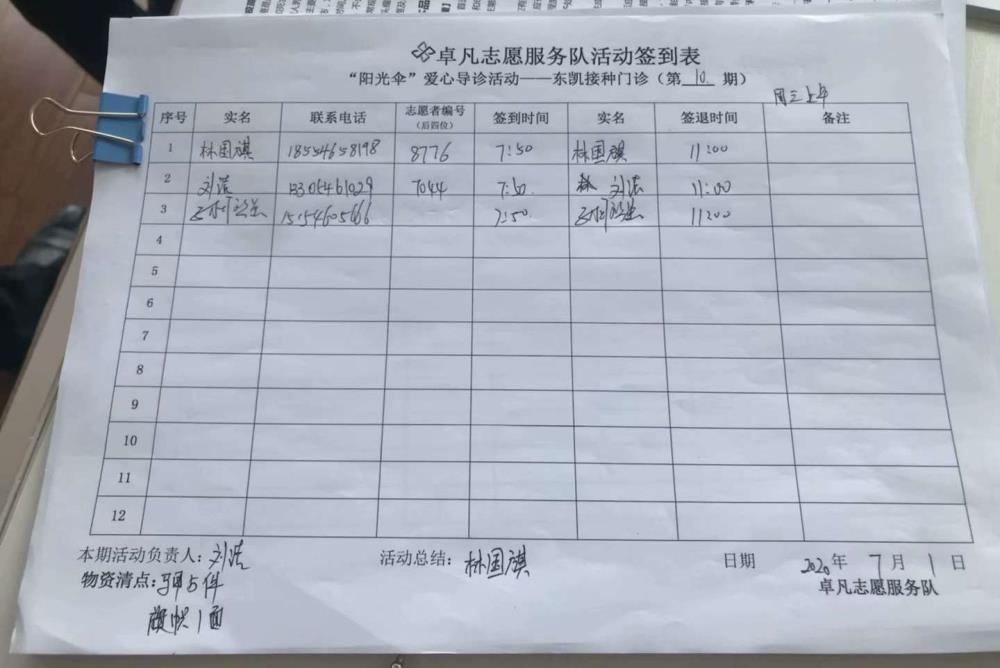 卓凡志愿服务队活动签到表
“阳光伞”爱心导诊活动——东凯接种门诊(第 10 期)
周三上午
序号 实名 联系电话 志愿者编号(后四位) 签到时间 实名 签退时间 备注
1 林国旗 18554658198 8776 7:50 林国旗 11:00
2 刘洁 13305461029 7044 7:50 刘洁 11:00
3 15154605666 7:50 11:00
4
5
6
7
8
9
10
11
12
本期活动负责人:刘洁 活动总结:林国旗 日期 2020年 7月 1日
物资清点:马甲5件 卓凡志愿服务队
旗帜1面